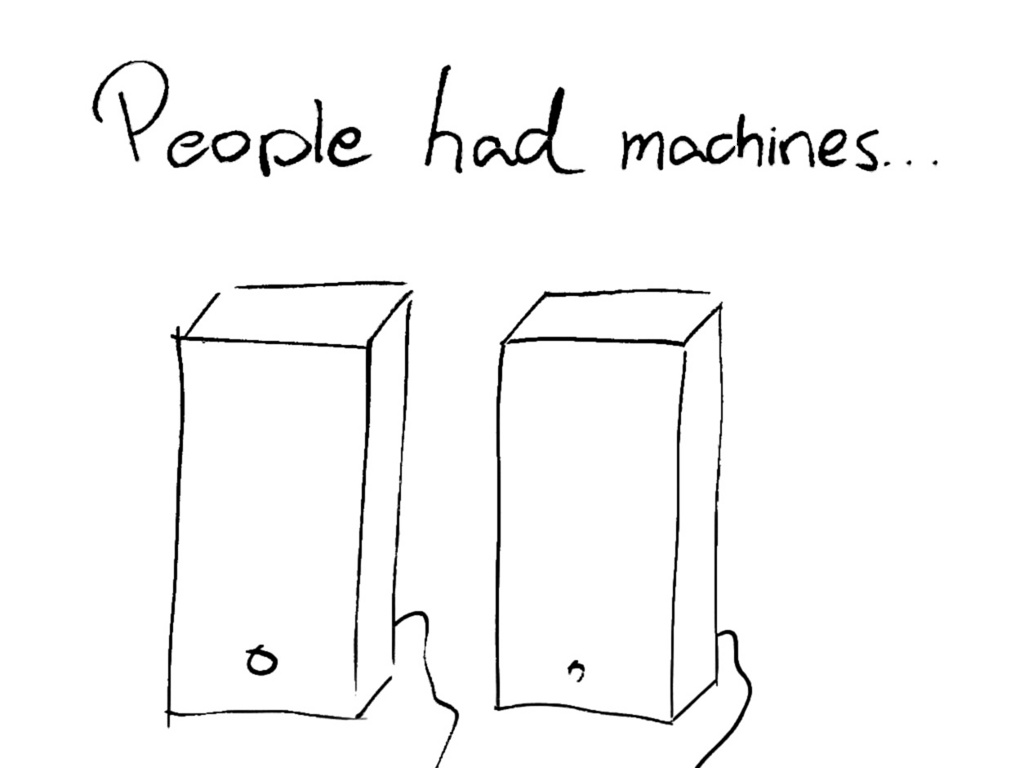 People had machines...